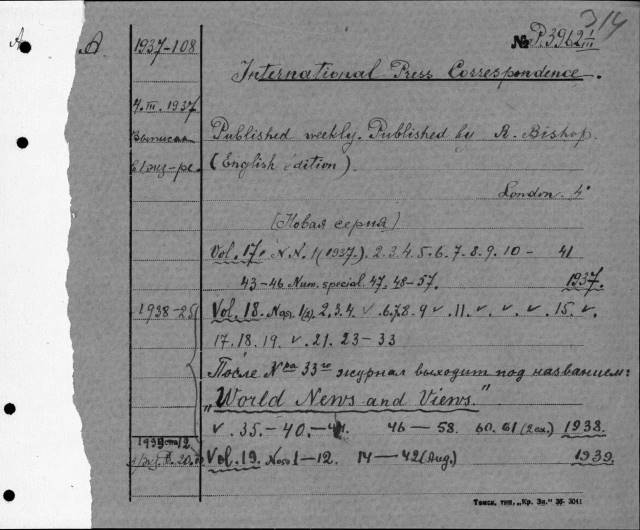 314
A A 1937-108 № P.3962 I/III
International Press Correspondence.
4.III.1937
Выписан Published weekly. Published by R. Bishop.
(English edition).
London. 4°
(Новая серия)
Vol. 17. N.N. 1(1937). 2. 3. 4. 5. 6. 7. 8. 9. 10 – 41
43–46 Num. special. 47. 48–57. 1937.
1938-25 Vol. 18. 2. 3. 4. v .6.7.8. 9 v .11. v. v. v. 15. v.
17. 18. 19. v .21. 23–33
После N 33 журнал выходит под названием:
„World News and Views."
v .35.–40.– 46–58. 60. 61 (2 ex.) 1938.
Vol. 19. Nos. 1–12. 14–42 (Aug.) 1939.
Томск, тип. „Кр. Зн." 36- 3041